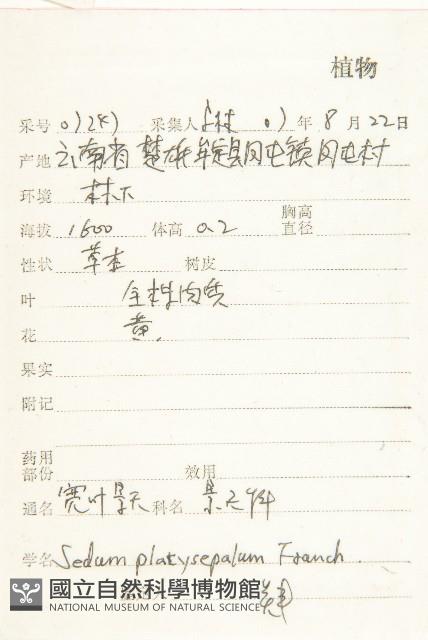 植物
采号 采集人 年 8 月 22 日
产地 云南省楚雄牟定县凤屯镇凤屯村
环境 林下
海拔 1600 体高 0.2 胸高直径
性状 草本 树皮
叶 全株肉质
花 黄.
果实
附记
药用部份 效用
通名 宽叶景天 科名 景天科
学名 Sedum platysepalum Franch.
國立自然科學博物館
NATIONAL MUSEUM OF NATURAL SCIENCE